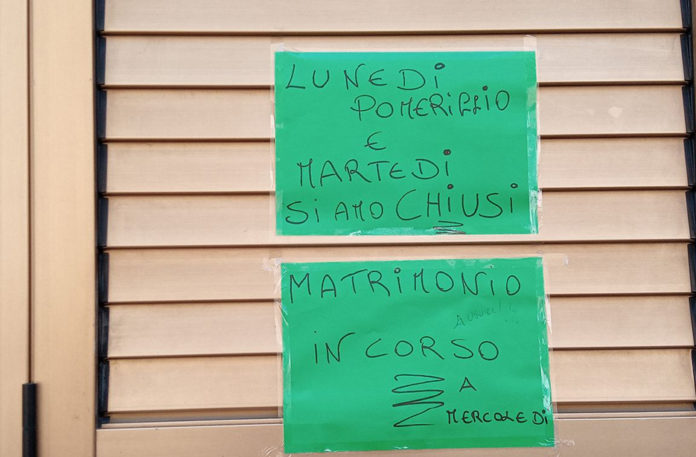 LUNEDÌ
POMERIGGIO
E
MARTEDÌ
Siamo CHiUSi
MATRiMONiO
AUGURi!!
iN CORSO
A
MERCOLEDì